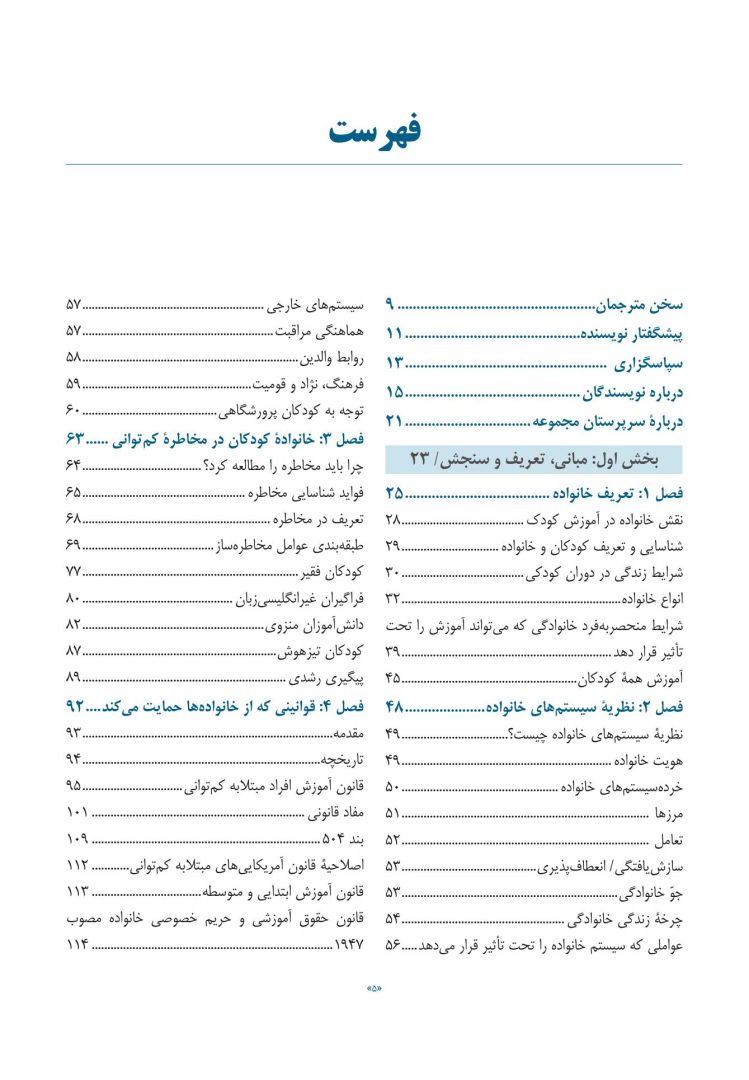 فهرست
سخن مترجمان................................................. ۹
پیشگفتار نویسنده............................................ ۱۱
سپاسگزاری ................................................. ۱۳
درباره نویسندگان ............................................ ۱۵
دربارهٔ سرپرستان مجموعه ............................... ۲۱
بخش اول: مبانی، تعریف و سنجش/ ۲۳
فصل ۱: تعریف خانواده .................................... ۲۵
نقش خانواده در آموزش کودک ....................................... ۲۸
شناسایی و تعریف کودکان و خانواده ............................... ۲۹
شرایط زندگی در دوران کودکی ....................................... ۳۰
انواع خانواده...................................................................... ۳۲
شرایط منحصربه‌فرد خانوادگی که می‌تواند آموزش را تحت
تأثیر قرار دهد ................................................................... ۳۹
آموزش همهٔ کودکان......................................................... ۴۵
فصل ۲: نظریهٔ سیستم‌های خانواده.................... ۴۸
نظریهٔ سیستم‌های خانواده چیست؟.................................. ۴۹
هویت خانواده ................................................................... ۴۹
خرده‌سیستم‌های خانواده .................................................. ۵۰
مرزها ................................................................................ ۵۱
تعامل ................................................................................ ۵۲
سازش‌یافتگی/ انعطاف‌پذیری........................................... ۵۳
جوّ خانوادگی..................................................................... ۵۳
چرخهٔ زندگی خانوادگی .................................................... ۵۴
عواملی که سیستم خانواده را تحت تأثیر قرار می‌دهد..... ۵۶
سیستم‌های خارجی .......................................................... ۵۷
هماهنگی مراقبت.............................................................. ۵۷
روابط والدین...................................................................... ۵۸
فرهنگ، نژاد و قومیت...................................................... ۵۹
توجه به کودکان پرورشگاهی............................................ ۶۰
فصل ۳: خانوادهٔ کودکان در مخاطرهٔ کم‌توانی ...... ۶۳
چرا باید مخاطره را مطالعه کرد؟...................................... ۶۴
فواید شناسایی مخاطره .................................................... ۶۵
تعریف در مخاطره ............................................................ ۶۸
طبقه‌بندی عوامل مخاطره‌ساز.......................................... ۶۹
کودکان فقیر ..................................................................... ۷۷
فراگیران غیرانگلیسی‌زبان ................................................. ۸۰
دانش‌آموزان منزوی........................................................... ۸۲
کودکان تیزهوش............................................................... ۸۷
پیگیری رشدی .................................................................. ۸۹
فصل ۴: قوانینی که از خانواده‌ها حمایت می‌کند.... ۹۲
مقدمه................................................................................ ۹۳
تاریخچه............................................................................. ۹۴
قانون آموزش افراد مبتلابه کم‌توانی ................................ ۹۵
مفاد قانونی .................................................................... ۱۰۱
بند ۵۰۴ ......................................................................... ۱۰۹
اصلاحیهٔ قانون آمریکایی‌های مبتلابه کم‌توانی............ ۱۱۲
قانون آموزش ابتدایی و متوسطه................................... ۱۱۳
قانون حقوق آموزشی و حریم خصوصی خانواده مصوب
۱۹۴۷............................................................................. ۱۱۴
«۵»